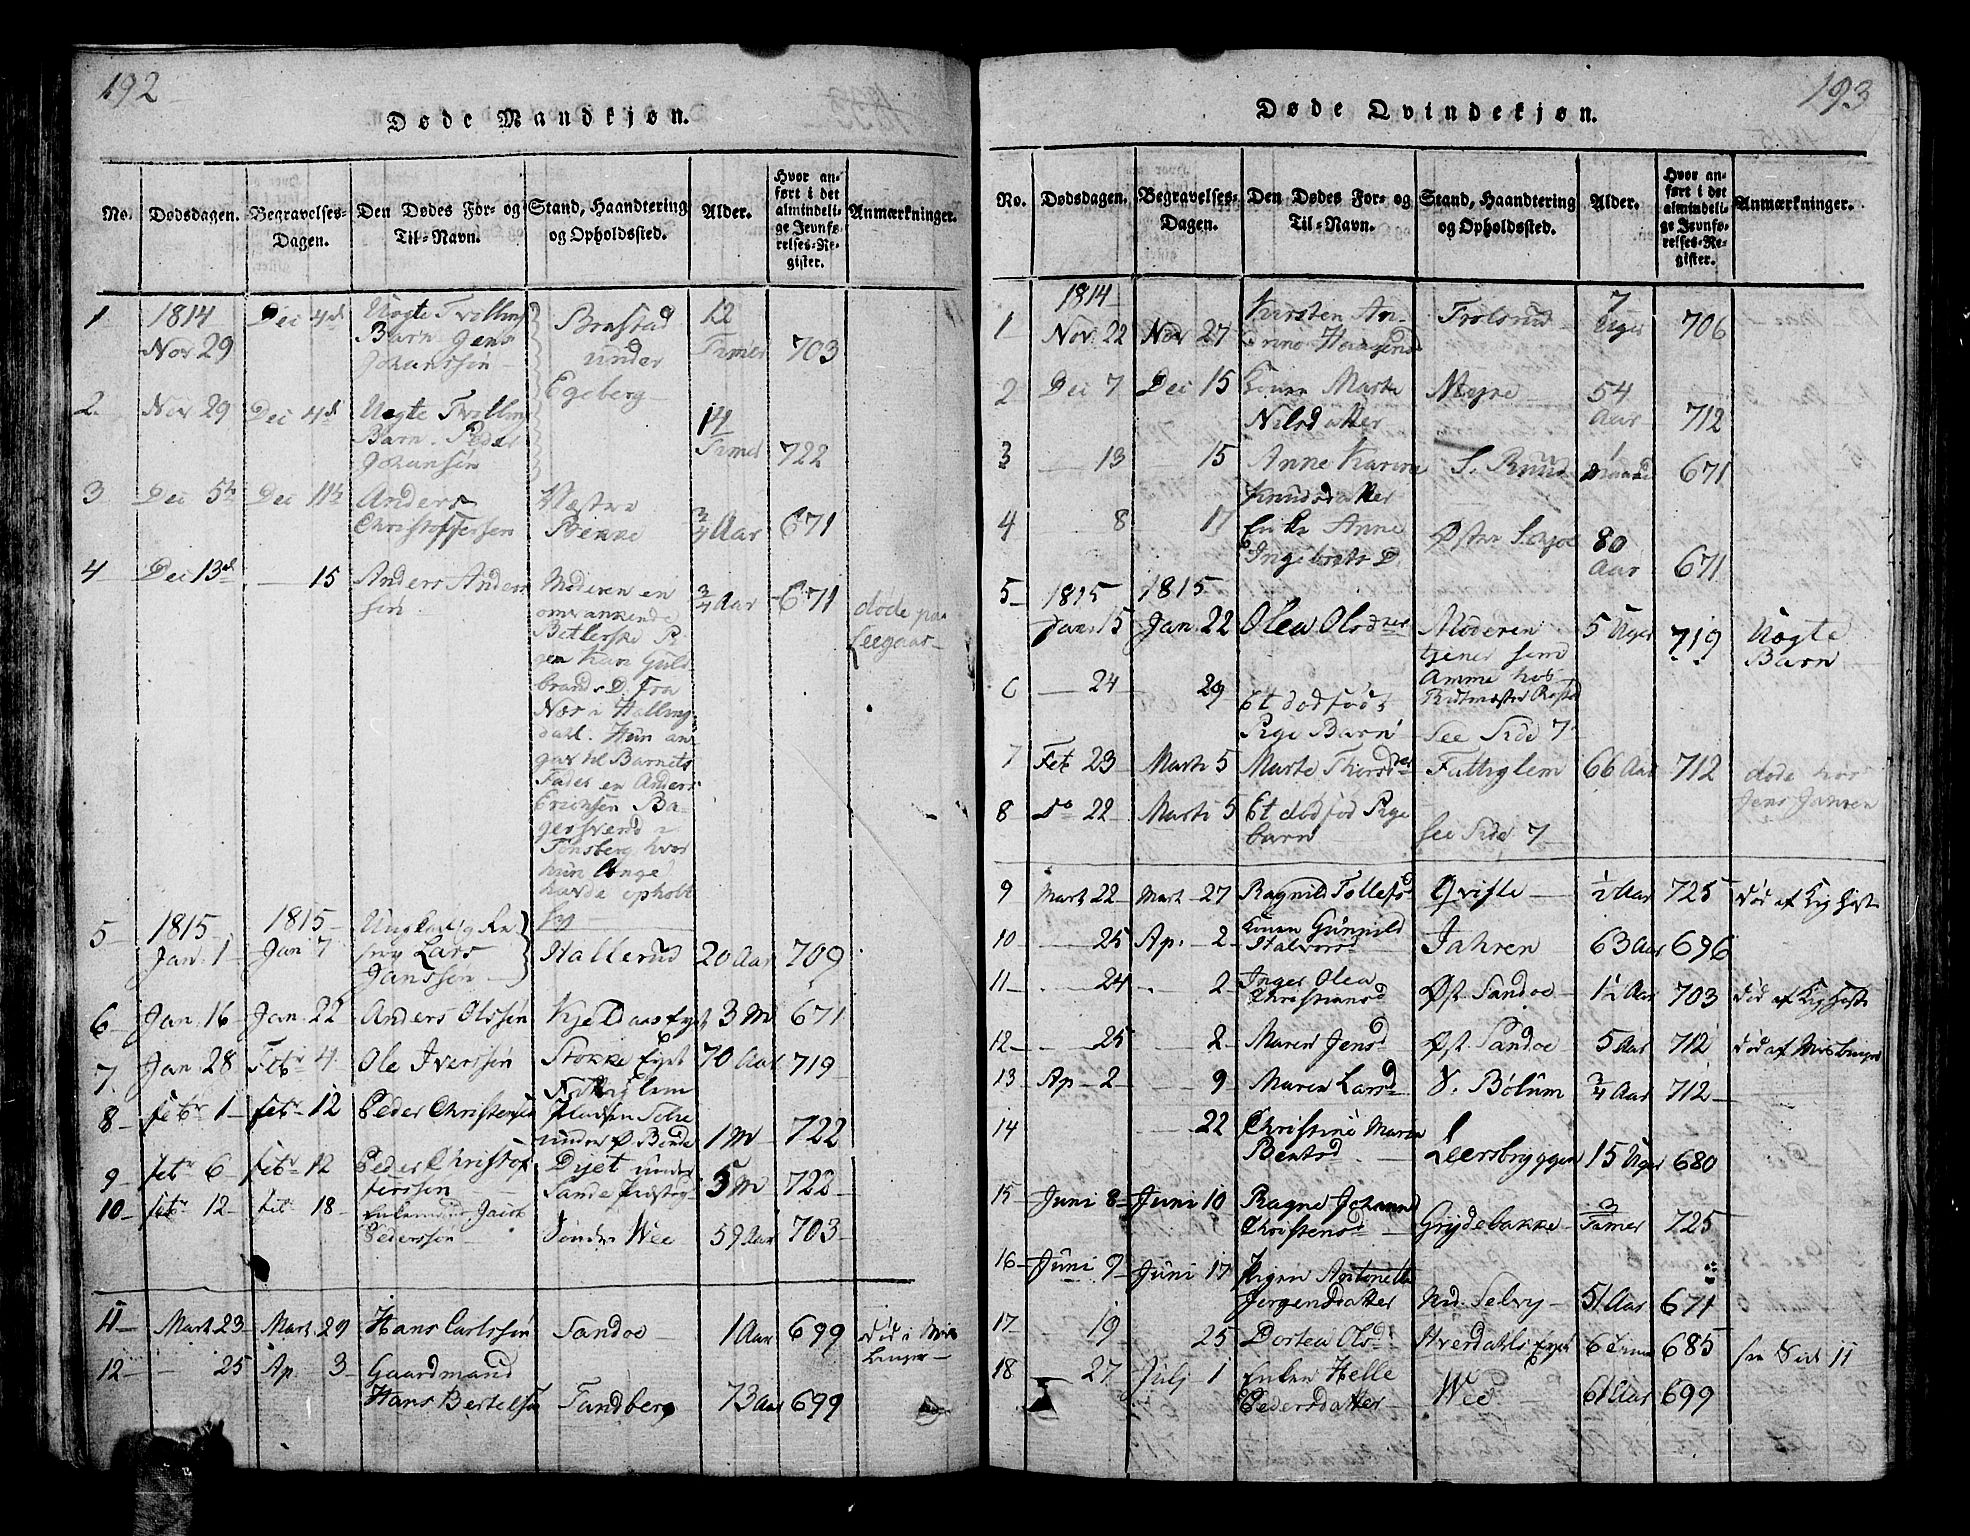 192
Døde Mandkjøn.
No. Dødsdagen. Begravelses-Dagen. Den Dødes For- og Til-Navn. Stand, Haandtering og Opholdssted. Alder. Hvor anført i det almindelige Jevnførelses-Register. Anmærkninger.
1 1814 Nov 29 Dec 4d Uægte Tvilling Barn Jens Johanssøn Brastad under Egeberg 12 Timer 703
2 Nov 29 Dec 4d Uægte Tvilling Barn Peder Johansøn 14 Timer 722
3 Dec 5te Dec 11te Anders Christoffersøn Væstre 3/4 Aar 671
4 Dec 13de — 15 Anders Anderssøn 3/4 Aar 671 døde paa
Moderen en
omvankende
Betlerske Pi
gen Kari Guld
brands D. fra
Næs i Halling
dahl. Hun an
gav til Barnets
Fader en Anders
Ericksen Ba
gersvend i
Tønsberg hvor
hun længe
havde opholdt
sig
5 1815 Jan. 1 1815 Jan 7 Lars Janssøn Hallerud 20 Aar 709
6 Jan. 16 Jan. 22 Anders Olssøn 3 M 671
7 Jan 28 Febr 4 Ole Iverssøn Stokke Eyet 70 Aar 719
8 Febr 1 Febr 12 Peder Christensen 1 M 722
9 Febr 6 Febr 12 Peder Christofferssøn under Sande Præstegr 5 M 722
10 Febr 12 Febr 18 Enkemand Jacob Pederssøn Søndre Wee 59 Aar 703
11 Mart 23 Mart 29 Hans Carlssøn Sandoe 1 Aar 699
12 — 25 Ap. 3 Gaardmand Hans Bertelsøn Sandberg 73 Aar 699
193
Døde Qvindekjøn.
No. Dødsdagen. Begravelses-Dagen. Den Dødes For- og Til-Navn. Stand, Haandtering og Opholdssted. Alder. Hvor anført i det almindelige Jevnførelses-Register. Anmærkninger.
1 1814 Nov. 22 Nov 27 Kirsten Frolsrud 7 Uger 706
2 Dec 7 Dec 15 Konen Marte Nilsdatter 54 Aar 712
3 — 13 — 15 Anne Karine Knudsdatter S. Ruud 1 Maaned 671
4 8 17 Enke Anne Ingebrets D. Østre 80 Aar 671
5 1815 Jan. 15 1815 Jan. 22 Olea Olsdter Moderen tjener som Amme hos Ritmæster 5 Uger 719 Uægte Barn
6 — 24 29 Et dødfød Pige Barn See Side 7
7 Feb 23 Marti 5 Marte Thorsdter Fattiglem 66 Aar 712 døde hos Jens Jansen
8 Do 22 Marti 5 Et dødfød Pige barn See Side 7
9 Mart 22 Mart 27 Ragnild Tollefsd Qvisle 1/2 Aar 725 død af Kighoste
10 — 25 Ap. 2 Konen Gunnild Halvorsd Jahren 63 Aar 696
11 — 24 — 2 Inger Olea Christiansd Øst. Sandoe 1 1/4 Aar 703 død af Kighoste
12 — 25 — 2 Maren Jensd Øst Sandoe 5 Aar 712 død af Meslinger
13 Ap 2 — 9 Maren Larsd V. Bølum 3/4 Aar 712
14 — 22 Christine Maria Bentsd Leersbryggen 15 Uger 680
15 Juni 8 Juni 10 Ragne Johanne Christensd Grydebakke 3 Timer 725
16 Juni 9 Juni 17 Pigen Antonette Jørgensdatter Nd. Selvy 51 Aar 671
17 — 19 25 Dortea Olsd Hverdahls Eyet 685 see Side 11
18 — 27 Julj 1 Enken Helle Pedersdatter Wee 61 Aar 699